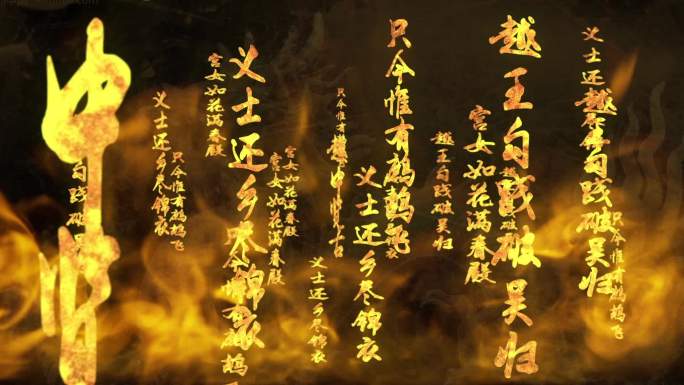 只今惟有鹧鸪飞
义士还
越王句践破吴归
越王句践破吴归
宫女如花满春殿
越王句践破吴归
只今惟有鹧鸪飞
义士还乡尽锦衣
只今惟有
义士还乡尽锦衣
宫女如花满春殿
宫女如花满春殿
义士还乡尽锦衣
宫女如花满春殿
只今惟有鹧鸪飞
义士还乡尽锦衣
句践破